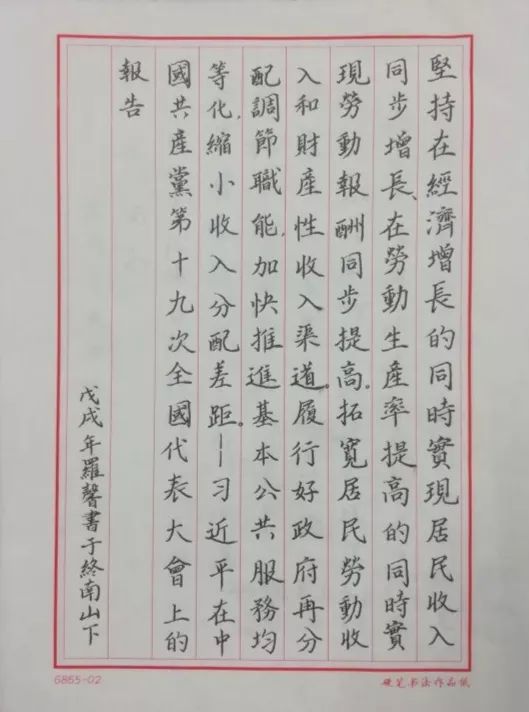 堅持在經濟增長的同時實現居民收入
同步增長、在勞動生產率提高的同時實
現勞動報酬同步提高。拓寬居民勞動收
入和財產性收入渠道。履行好政府再分
配調節職能，加快推進基本公共服務均
等化，縮小收入分配差距。——习近平在中
國共產黨第十九次全國代表大會上的
報告
戊戌年羅馨書于終南山下
6865-02
硬笔书法作品纸